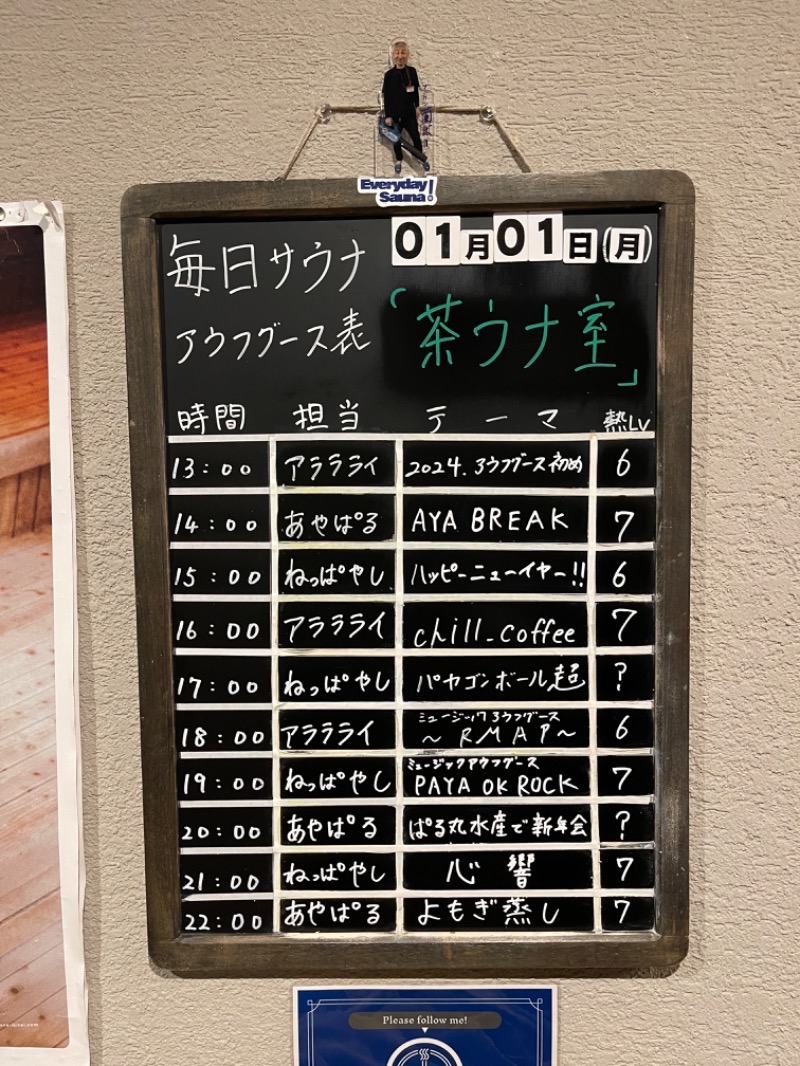 Everyday
Sauna!
毎日サウナ
01月01日(月)
アウフグース表
「茶ウナ室」
時間 担当 テーマ 熱Lv
13:00 アララライ 2024.アウフグース初め 6
14:00 あやぱる AYA BREAK 7
15:00 ねっぱやし ハッピーニューイヤー!! 6
16:00 アララライ chill-coffee 7
17:00 ねっぱやし パヤゴンボール超 ?
18:00 アララライ ミュージックアウフグース
〜RMAP〜 6
19:00 ねっぱやし ミュージックアウフグース
PAYA OK ROCK 7
20:00 あやぱる ぱる丸水産で新年会 ?
21:00 ねっぱやし 心響 7
22:00 あやぱる よもぎ蒸し 7
Please follow me!